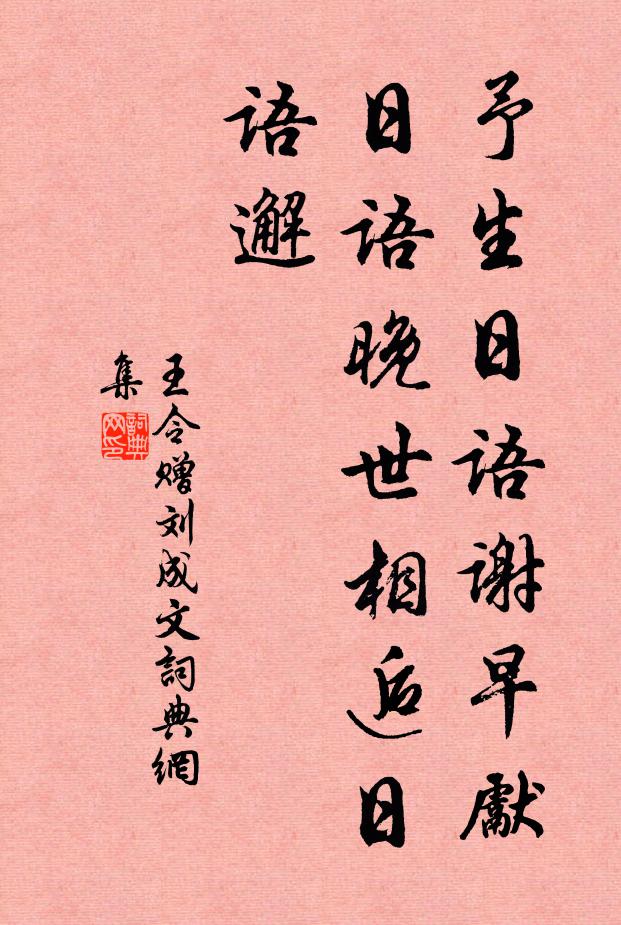 予生日语谢早獻
日语晚世相逅日
语邂
王令赠刘成文詞典網
集
詞典
网印